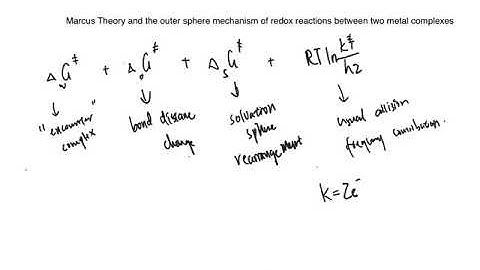 Marcus Theory and the outer sphere mechanism of redox reactions between two metal complexes
ΔᵥG‡ + ΔₒG‡ + ΔₛG‡ + RT ln kT/hZ
"encounter complex"
bond distance change
solvation sphere rearrangement
usual collision frequency contribution.
k=Ze⁻